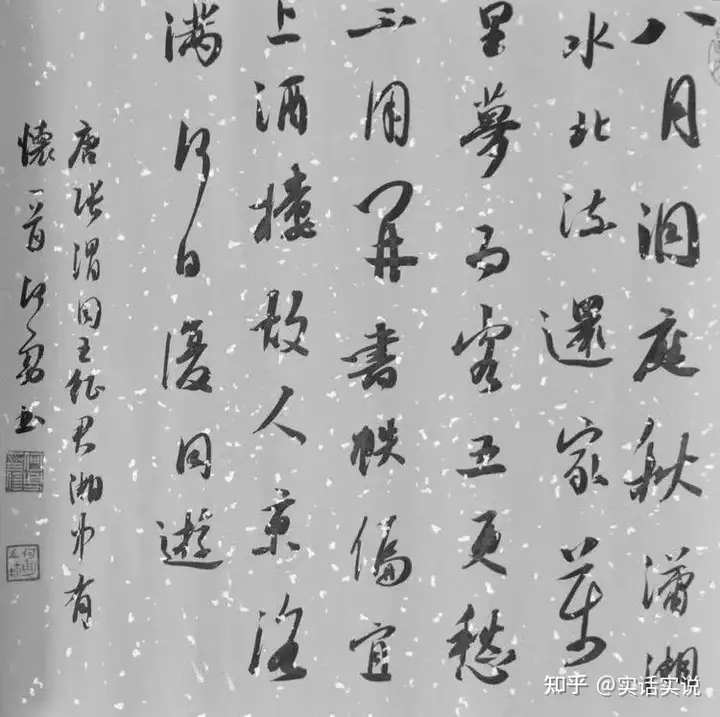 八月洞庭秋瀟湘
水北流還家萬
里夢為客五更愁
不用開書帙偏宜
上酒樓故人京洛
滿何日復同遊
唐張渭同王徵君湘中有
懷一首何書
知乎 @实话实说